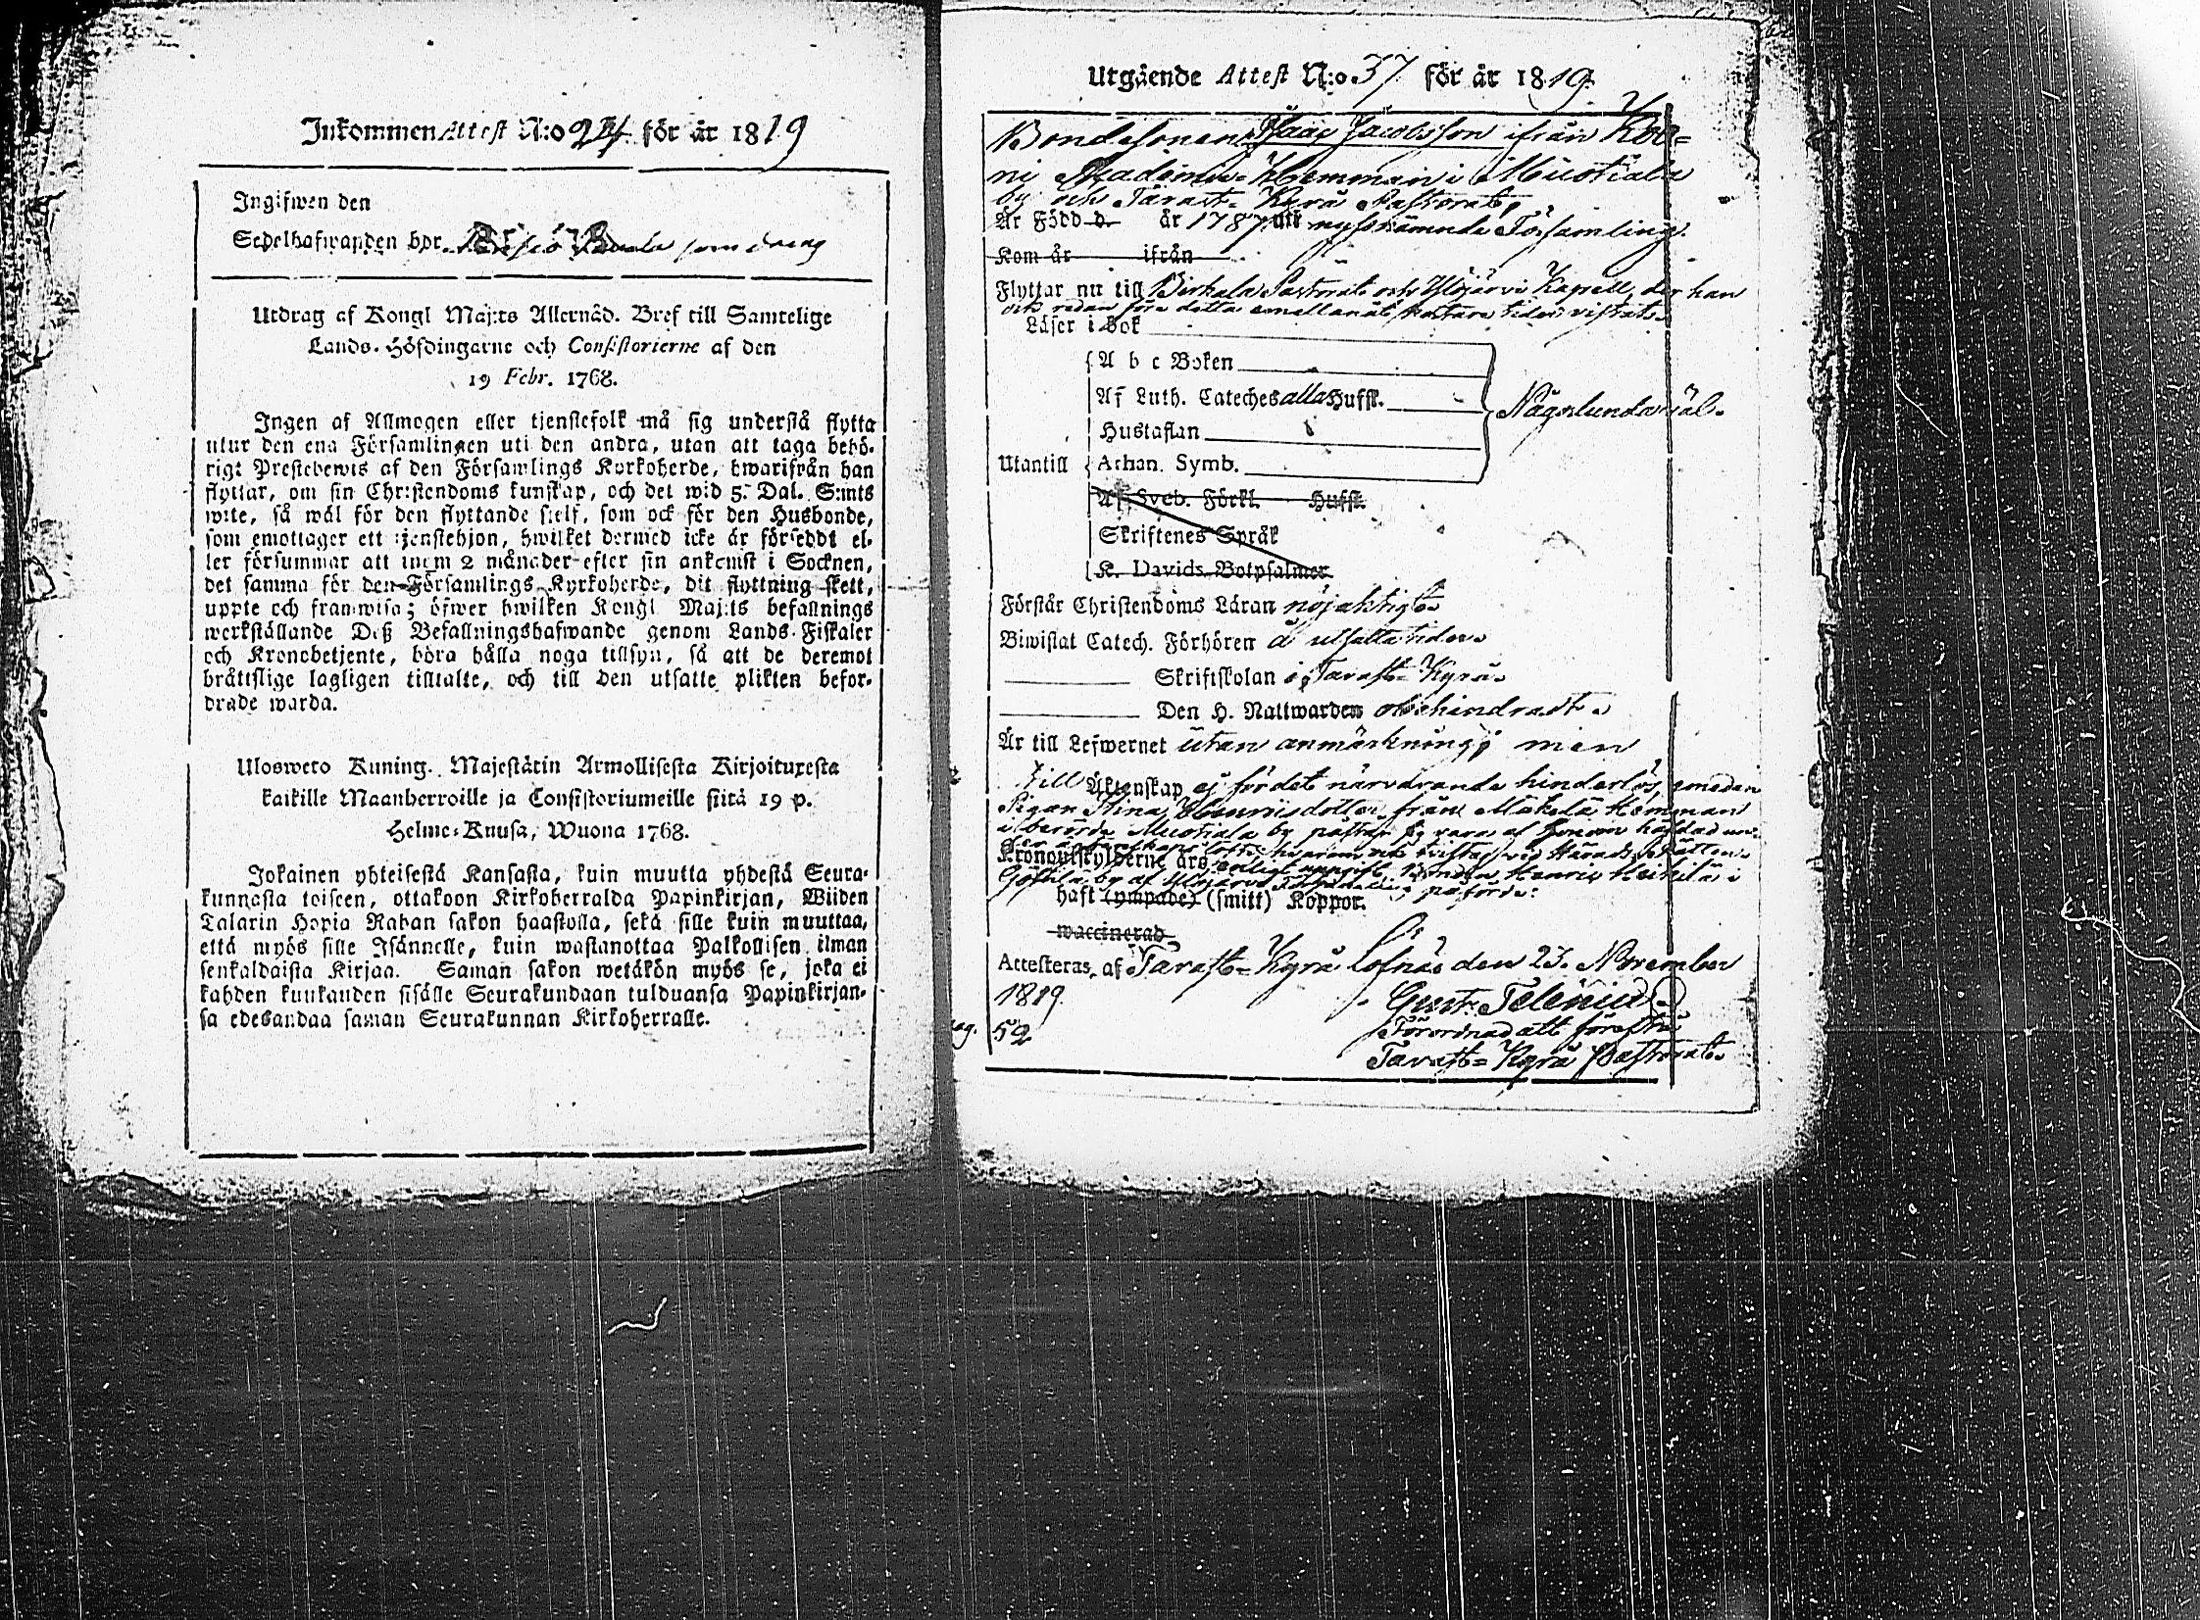 Inkommen Attest N:o 24 för år 1819
Ingifwen den
Sedelhafwanden bor som dräng
Utdrag af Kongl Maj:ts Allernåd. Bref till Samtelige
Lands-Höfdingarne och Consistorierne af den
19 Febr. 1768.
Ingen af Allmogen eller tjenstefolk må sig understå flytta
utur den ena Församlingen uti den andra, utan att taga behö-
rigt Prestebewis af den Församlings Kyrkoherde, hwarifrån han
flyttar, om sin Christendoms kunskap, och det wid 5. Dal. S:mts
wite, så wäl för den flyttande sielf, som ock för den Husbonde,
som emottager ett tjenstehjon, hwilket dermed icke är förseddt el-
ler försummar att inom 2 månader efter sin ankomst i Socknen,
det samma för den Församlings Kyrkoherde, dit flyttning skett,
uppte och framwisa; öfwer hwilken Kongl Maj:ts befallnings
werkställande Deß Befallningshafwande genom Lands-Fiskaler
och Kronobetjente, böra hålla noga tillsyn, så att de deremot
bråttslige lagligen tilltalte, och till den utsatte plikten befor-
drade warda.
Ulosweto Kuning. Majestätin Armollisesta Kirjoituxesta
kaikille Maanherroille ja Consistoriumeille siitä 19 p.
Helme-Kuusa, Wuona 1768.
Jokainen yhteisestä Kansasta, kuin muutta yhdestä Seura-
kunnasta toiseen, ottakoon Kirkoherralda Papinkirjan, Wiiden
Talarin Hopia Rahan sakon haastolla, sekä sille kuin muuttaa,
että myös sille Isännelle, kuin wastanottaa Palkollisen ilman
senkaldaista Kirjaa. Saman sakon wetäkön myös se, joka ei
kahden kuukauden sisälle Seurakundaan tulduansa Papinkirjan-
sa edesandaa saman Seurakunnan Kirkoherralle.
Utgående Attest N:o 37 för år 1819.
Bondesonen Isaac Jacobsson ifrån Kor-
ni Academie-Hemman i Muotiala
by och Tavast-Kyrå Pastorat,
Är Född d. år 1787 uti nyssnämnda Församling.
Kom år ifrån
Flyttar nu till Birkala Pastorat och Ylöjärvi Kapell, der han
ock redan före detta emellanåt kortare tider vistats.
Läser i bok
A b c Boken
Af Luth. Cateches alla Hufst.
Någorlunda väl.
Hustaflan
Utantill Athan. Symb.
Af Sveb. Förkl. Hufst.
Skriftenes Språk
K. Davids Botpsalmer
Förstår Christendoms Läran nöjaktigt.
Biwistat Catech. Förhören å utsatta tider.
Skriftskolan i Tavast-Kyrå.
Den H. Nattwarden obehindradt.
Är till Lefwernet utan anmärkning; men
till Äktenskap ej för det närvarande hinderlös, emedan
Pigan Stina Henricsdotter från Mäkelä Hemman
i berörde Muotiala by påstår sig vara af honom häfdad un-
der äktenskaps löfte, hvarom nu tvistas vid Härads Rätten.
Kronoutskylderne äro enligt uppgift, Bonden Henric Heikilä i
by af Ylöjärvi påförde.
haft (ympade) (smitt) Koppor.
waccinerad
Attesteras, af Tavast-Kyrå Löfnäs den 23. November
1819.
Gust: Telenius
Förordnad att förestå
Tavast-Kyrå Pastorat.
pag. 52